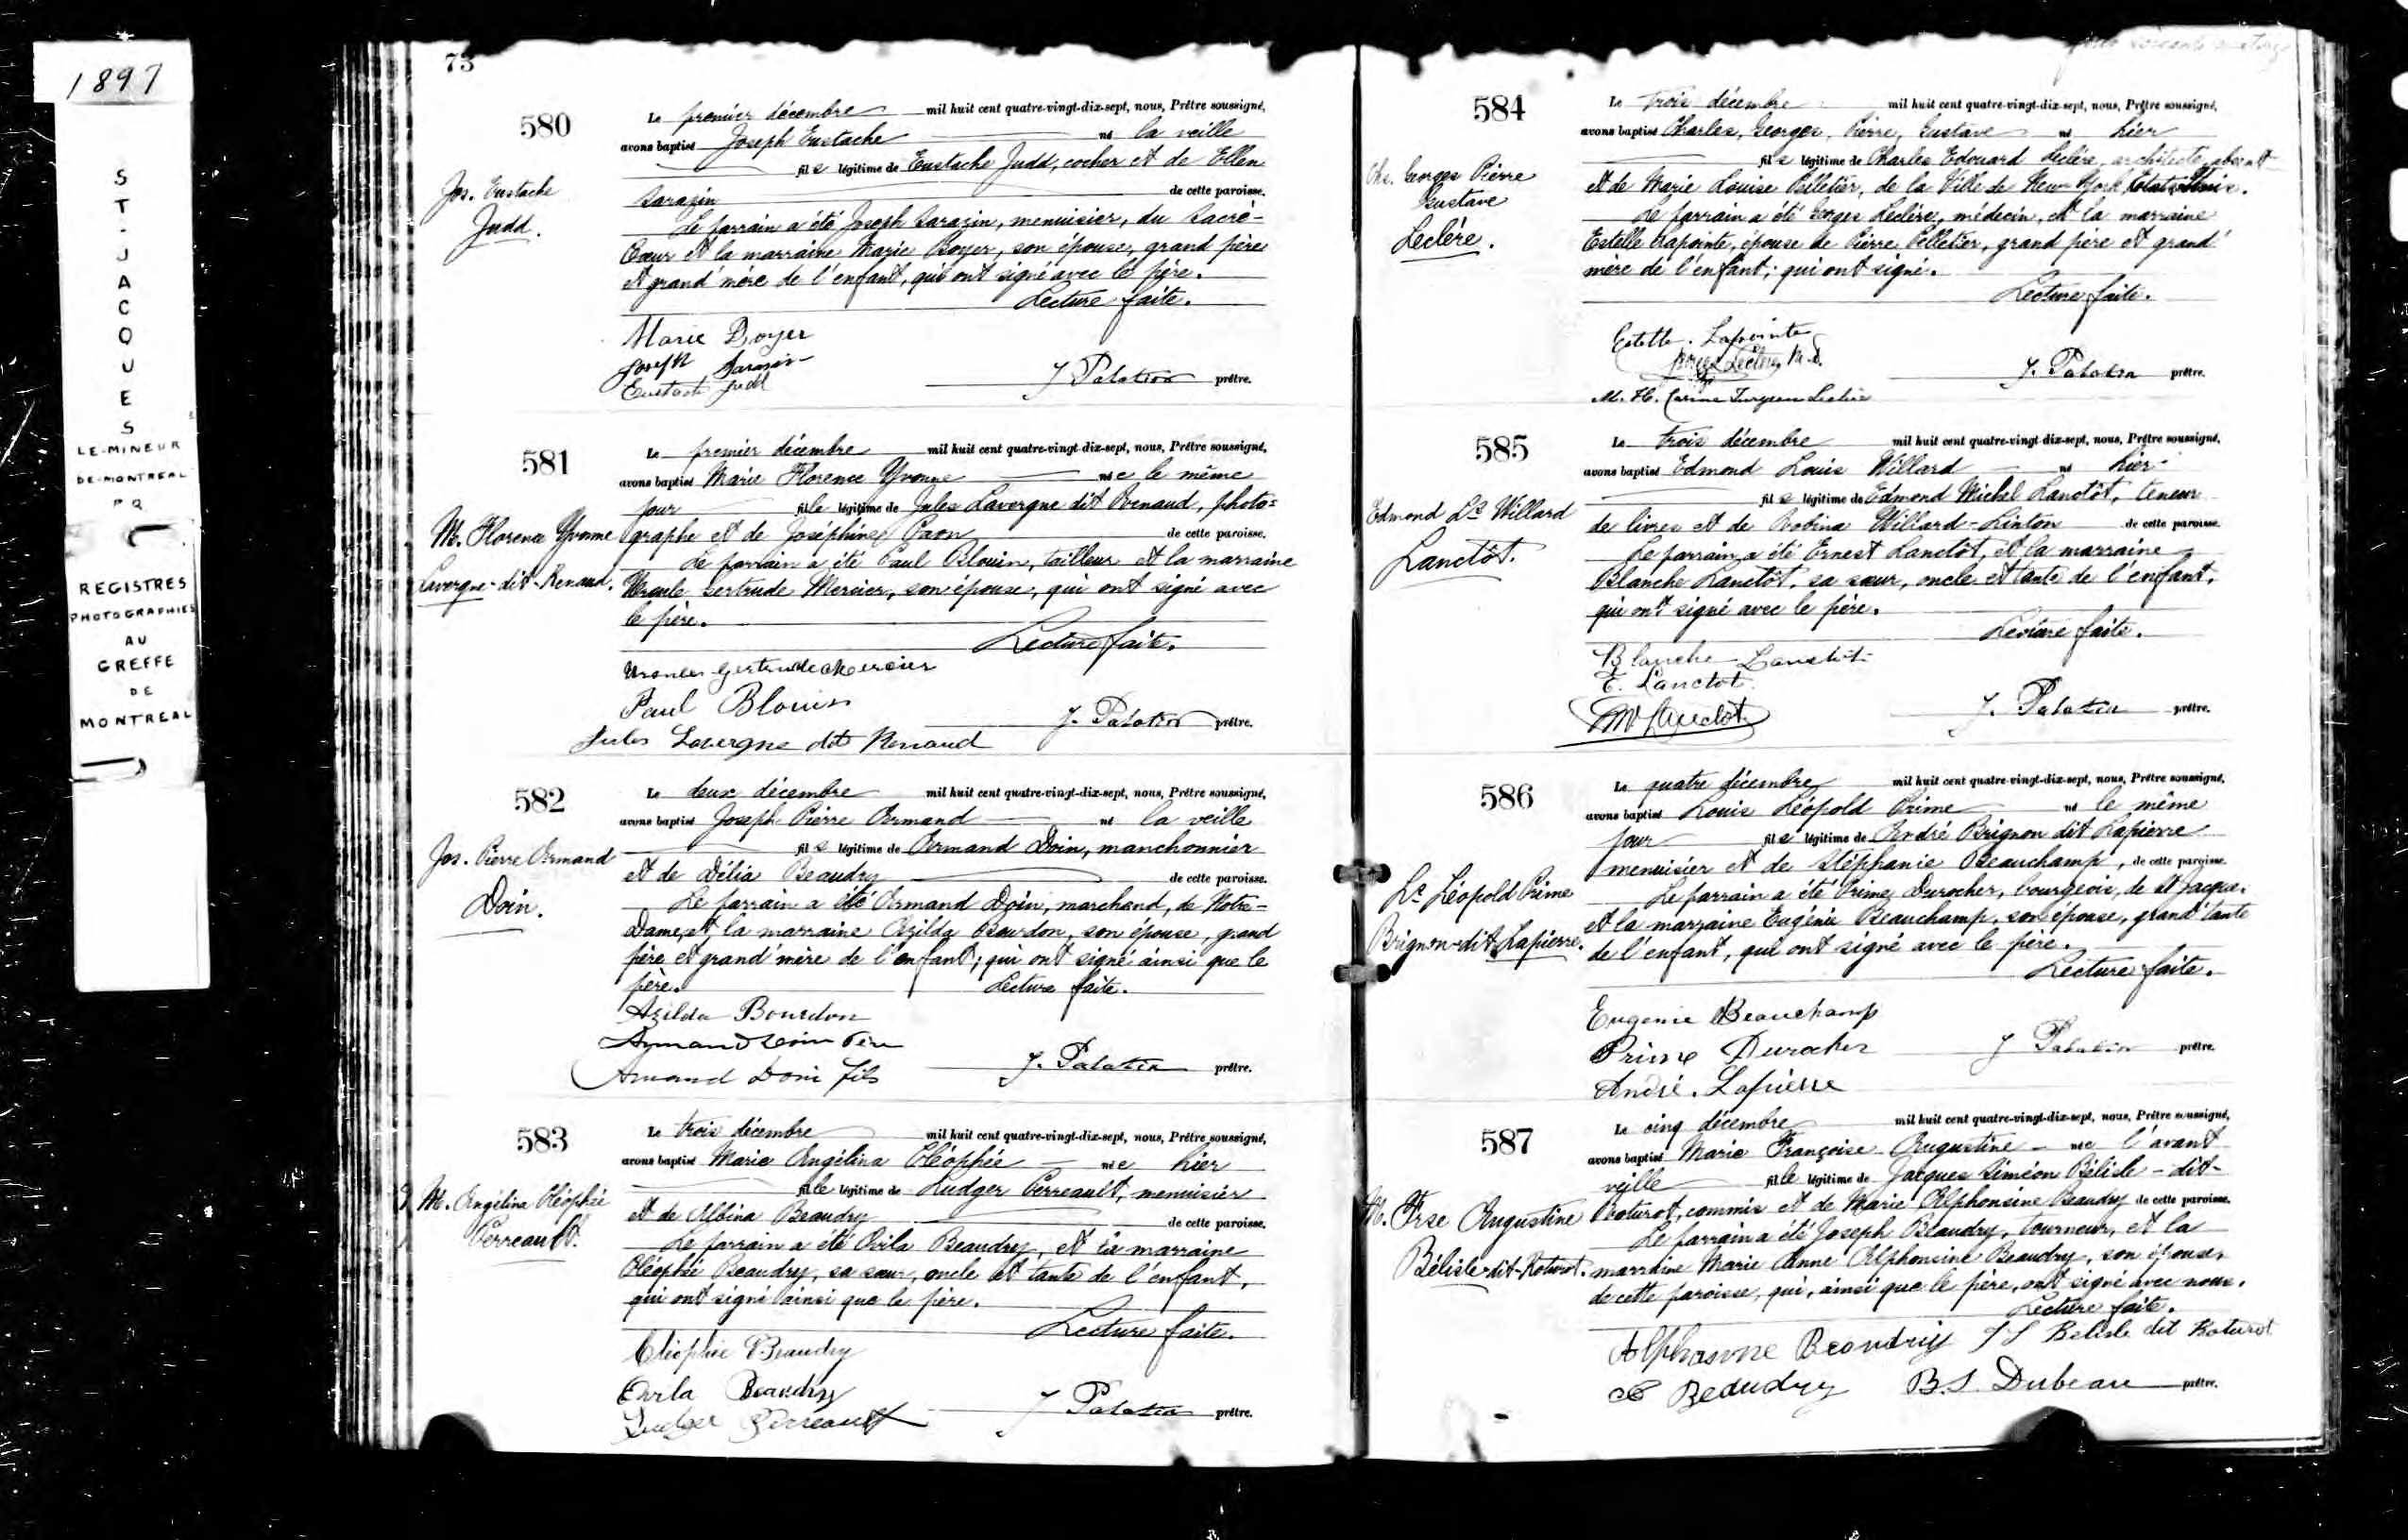 1897
S
T
-
J
A
C
Q
U
E
S
LE-MINEUR
DE-MONTREAL
P Q
REGISTRES
PHOTOGRAPHIES
AU
GREFFE
DE
MONTREAL
73
580
Jos. Eustache
Judd.
Le premier décembre mil huit cent quatre-vingt-dix-sept, nous, Prêtre soussigné,
avons baptisé Joseph Eustache né la veille
fils légitime de Eustache Judd, cocher et de Ellen
Sarazin de cette paroisse.
Le parrain a été Joseph Sarazin, menuisier, du Sacré-
Cœur et la marraine Marie Boyer, son épouse, grand père
et grand'mère de l'enfant, qui ont signé avec le père.
Lecture faite.
Marie Boyer
Joseph Sarazin
Eustache Judd
J. Palatin prêtre.
581
M. Florence Yvonne
Lavergne-dit-Renaud.
Le premier décembre mil huit cent quatre-vingt-dix-sept, nous, Prêtre soussigné,
avons baptisé Marie Florence Yvonne née le même
jour fille légitime de Jules Lavergne dit Renaud, photo=
graphe et de Joséphine Paon de cette paroisse.
Le parrain a été Paul Blouin, tailleur et la marraine
Ursule Gertrude Mercier, son épouse, qui ont signé avec
le père.
Lecture faite.
Ursule Gertrude Mercier
Paul Blouin
Jules Lavergne dit Renaud
J. Palatin prêtre.
582
Jos. Pierre Armand
Doin.
Le deux décembre mil huit cent quatre-vingt-dix-sept, nous, Prêtre soussigné,
avons baptisé Joseph Pierre Armand né la veille
fils légitime de Armand Doin, manchonnier
et de Délia Beaudry de cette paroisse.
Le parrain a été Armand Doin, marchand, de Notre-
Dame, et la marraine Azilda Bourdon, son épouse, grand
père et grand'mère de l'enfant; qui ont signé ainsi que le
père. Lecture faite.
Azilda Bourdon
Armand Doin Père
Armand Doin fils
J. Palatin prêtre.
583
M. Angélina Cléophée
Perreault.
Le trois décembre mil huit cent quatre-vingt-dix-sept, nous, Prêtre soussigné,
avons baptisé Marie Angélina Cléophée née hier
fille légitime de Ludger Perreault, menuisier
et de Albina Beaudry de cette paroisse.
Le parrain a été Ovila Beaudry, et la marraine
Cléophée Beaudry, sa sœur, oncle et tante de l'enfant,
qui ont signé ainsi que le père.
Lecture faite.
Cléophée Beaudry
Ovila Beaudry
Ludger Perreault
J Palatin prêtre.
584
Chs. Georges Pierre
Gustave
Leclère.
Le trois décembre mil huit cent quatre-vingt-dix-sept, nous, Prêtre soussigné,
avons baptisé Charles, Georges, Pierre, Gustave né hier
fils légitime de Charles Edouard Leclère, architecte, absent
et de Marie Louise Pelletier, de la Ville de New-York Etats-Unis.
Le parrain a été Georges Leclère, médecin, et la marraine
Estelle Lapointe, épouse de Pierre Pelletier, grand père et grand'
mère de l'enfant; qui ont signé.
Lecture faite.
Estelle Lapointe
Georges Leclère M.D.
M. H. Turgeon Leclère
J. Palatin prêtre.
585
Edmond Ls Willard
Lanctôt.
Le trois décembre mil huit cent quatre-vingt-dix-sept, nous, Prêtre soussigné,
avons baptisé Edmond Louis Willard né hier
fils légitime de Edmond Michel Lanctôt, teneur
de livres et de Robina Willard-Linton de cette paroisse.
Le parrain a été Ernest Lanctôt, et la marraine
Blanche Lanctôt, sa sœur, oncle et tante de l'enfant,
qui ont signé avec le père.
Lecture faite.
Blanche Lanctôt
E. Lanctot.
EM Lanctôt
J. Palatin prêtre.
586
Ls Léopold Prime
Brignon-dit-Lapierre.
Le quatre décembre mil huit cent quatre-vingt-dix-sept, nous, Prêtre soussigné,
avons baptisé Louis Léopold Prime né le même
jour fils légitime de André Brignon dit Lapierre
menuisier et de Stéphanie Beauchamp, de cette paroisse.
Le parrain a été Prime Durocher, bourgeois, de St Jacques
et la marraine Eugénie Beauchamp, son épouse, grand'tante
de l'enfant, qui ont signé avec le père.
Lecture faite.
Eugenie Beauchamp
Prime Durocher
André. Lapierre
J Palatin prêtre.
587
M. Frse Augustine
Bélisle-dit-Roturot.
Le cinq décembre mil huit cent quatre-vingt-dix-sept, nous, Prêtre soussigné,
avons baptisé Marie Françoise Augustine née l'avant
veille fille légitime de Jacques Siméon Bélisle-dit-
Roturot, commis et de Marie Alphonsine Beaudry de cette paroisse.
Le parrain a été Joseph Beaudry, tourneur, et la
marraine Marie Anne Alphonsine Beaudry, son épouse,
de cette paroisse, qui, ainsi que le père, ont signé avec nous.
Lecture faite.
Alphonsine Beaudry J S Belisle dit Roturot
Beaudry B.S. Dubeau prêtre.